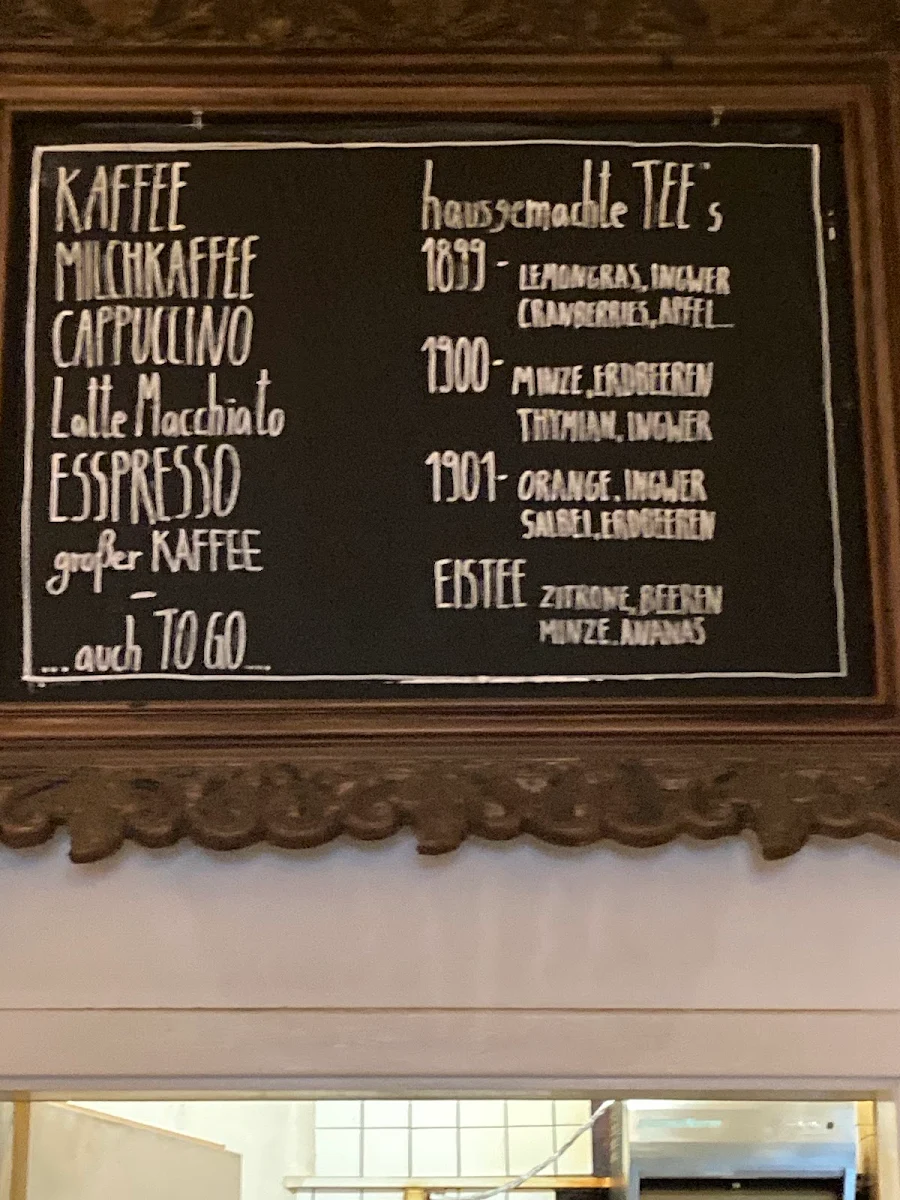 KAFFEE
MILCHKAFFEE
CAPPUCCINO
Latte Macchiato
ESSPRESSO
großer KAFFEE
–
...auch TO GO...
hausgemachte TEE"s
1899 - LEMONGRAS, INGWER
CRANBERRIES, APFEL
1900 - MINZE, ERDBEEREN
THYMIAN, INGWER
1901 - ORANGE, INGWER
SALBEI, ERDBEEREN
EISTEE ZITRONE, BEEREN
MINZE, ANANAS